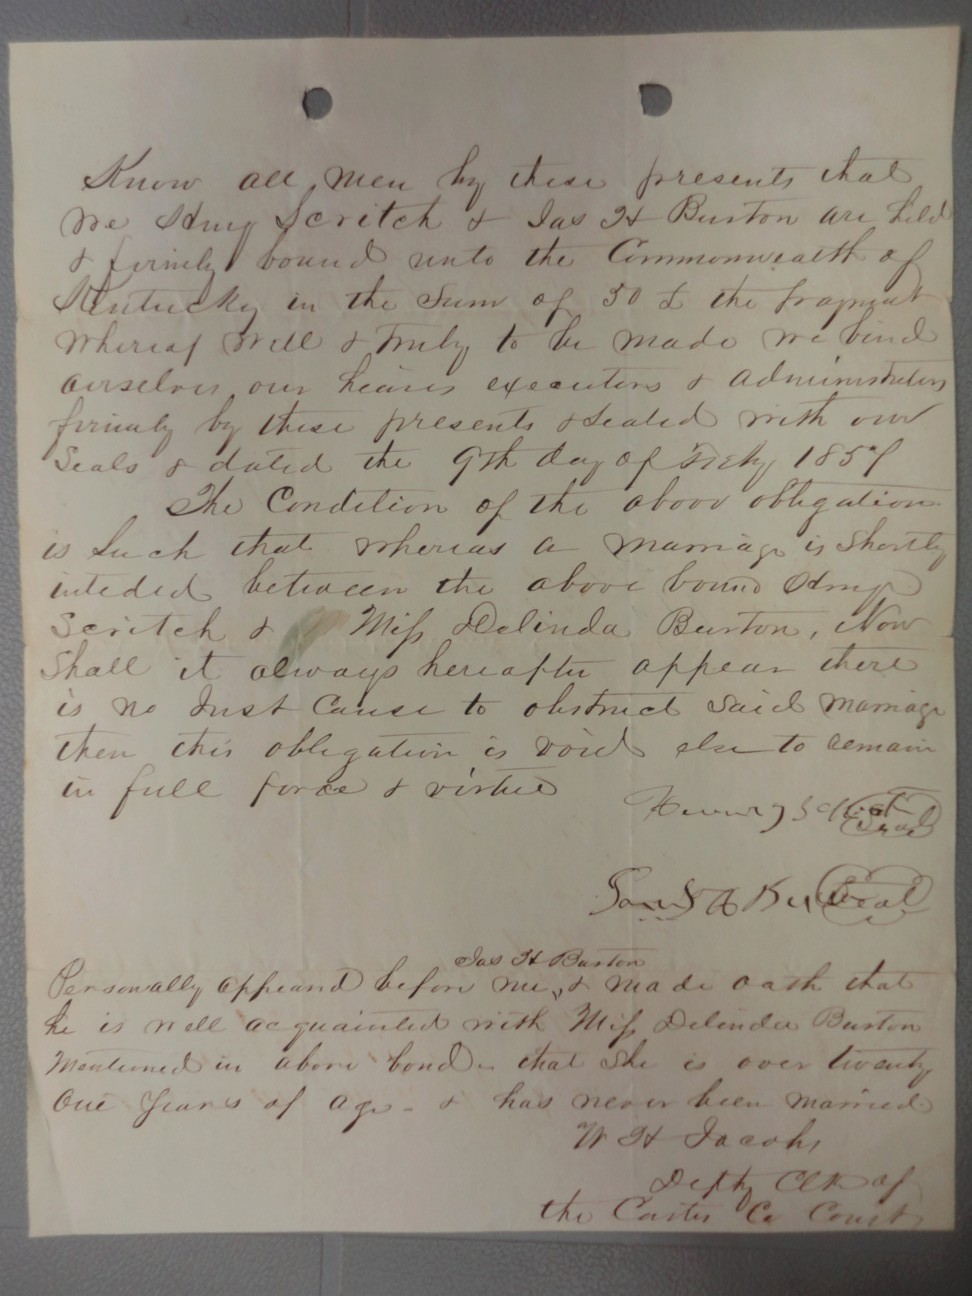 Know all men by these presents that
we Henry Scritch & Jas H Burton are held
& firmly bound unto the Commonwealth of
Kentucky in the Sum of 50 £ the
whereof well & truly to be made we bind
ourselves our heirs executors & administrators
firmly by these presents & sealed with our
Seals & dated the 9th day of Feby 1857
The Condition of the above obligation
is Such that whereas a marriage is Shortly
inteded between the above bound Henry
Scritch & Miss Delinda Burton, Now
Shall it always hereafter appear there
is no Just Cause to obstruct Said marriage
then this obligation is void else to remain
in full force & virtue
Henry Seal
H Seal
Jas H Burton
Personally appeared before me, & made oath that
he is well acquainted with Miss Delinda Burton
Mentioned in above bond that She is over twenty
One Years of age - & has never been married
W H Jacobs
Depty Clk of
the Carter Co Court